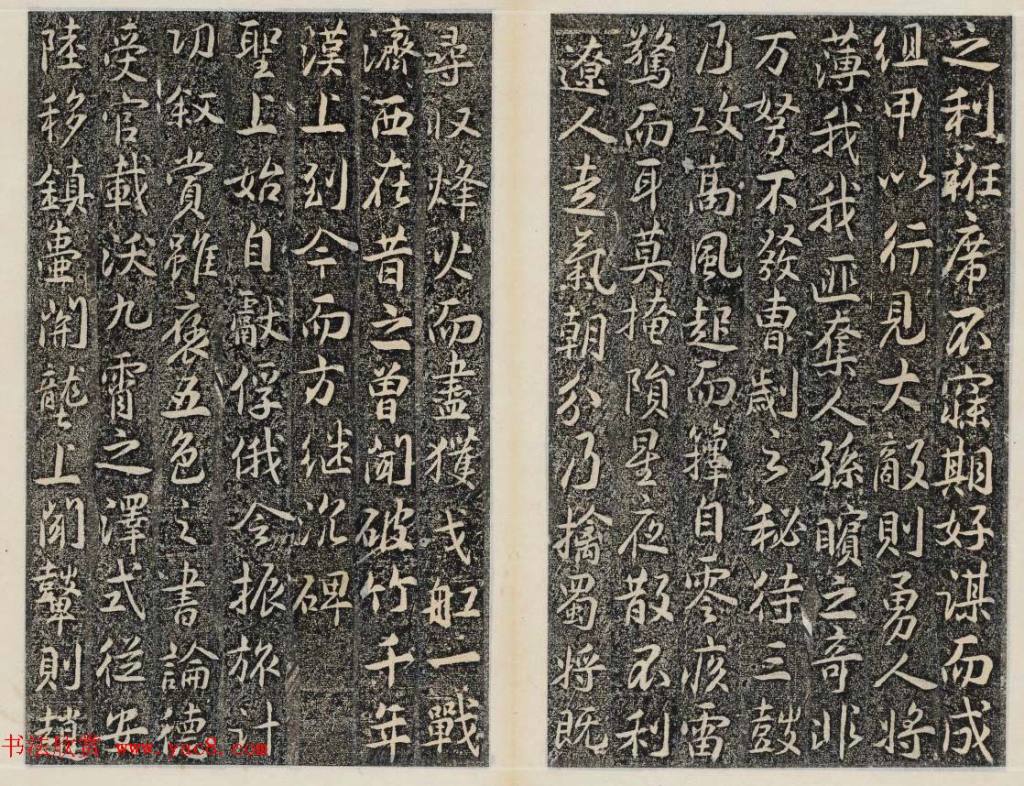 之利衽席不寐期好謀而成
组甲以行見大敵則勇人將
薄我我奪人孫臏之奇非
万弩不發曹劌之秘待三鼓
乃攻萬風起而籜自零疾雷
驚而耳莫掩隕星夜散不利
遼人走氣朝分乃擒蜀將既
尋収烽火而盡獲戈舡一戰
濟西在昔之曾聞破竹千年
漢上到今而方继沉碑
聖上始自獻俘俄令振旅計
功敘賞雖褒五色之書論德
受官載沃九霄之澤式從安
陸移鎮壷關壟上聞鼙則趙
书法欣赏 www.yac8.com